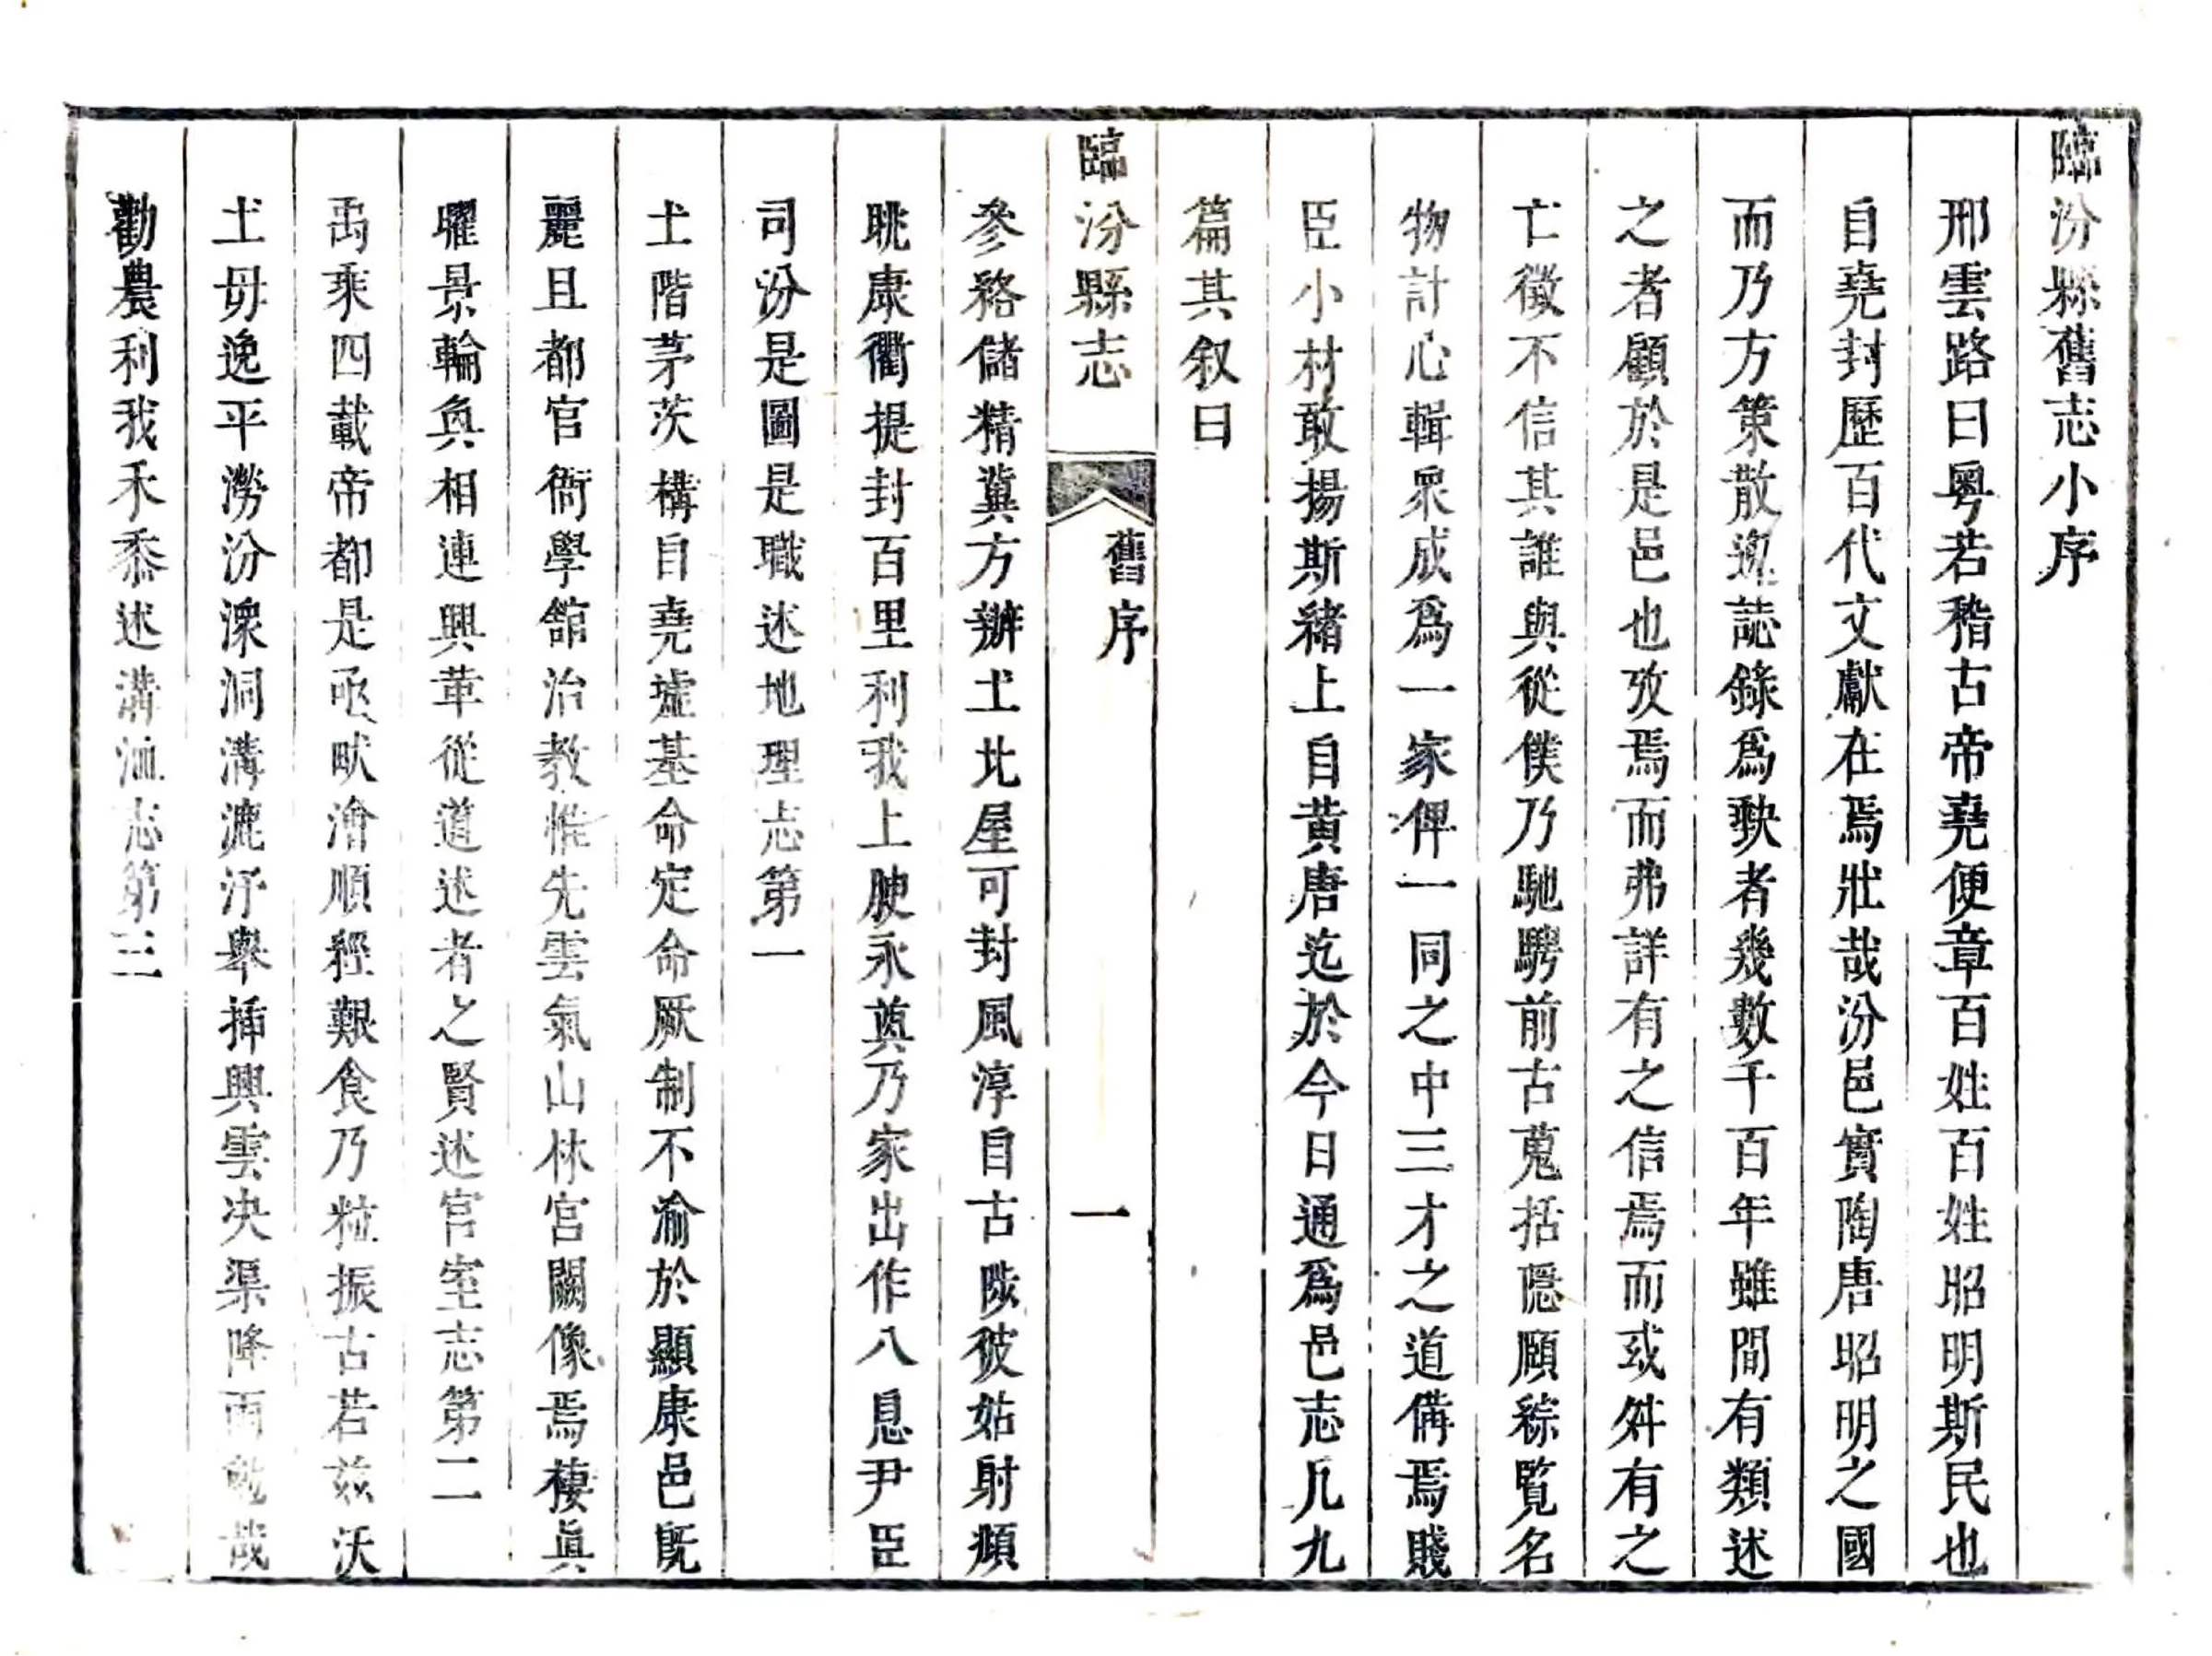 臨汾縣舊志小序
邢雲路曰粵若稽古帝堯便章百姓百姓昭明斯民也
自堯封歷百代文獻在焉壯哉汾邑實陶唐昭明之國
而乃方策散逸誌錄爲缺者幾數千百年雖間有類述
之者顧於是邑也攷焉而弗詳有之信焉而或舛有之
亡徵不信其誰與從僕乃馳騁前古蒐括隱頤綜覧名
物計心輯眾成爲一家俾一同之中三才之道備焉賤
臣小材敢揚斯緒上自黃唐迄於今日通爲邑志凡九
篇其叙曰
臨汾縣志 舊序 一
參觡儲精冀方辦土比屋可封風淳自古陟彼姑射頫
眺康衢提封百里利我上腴永奠乃家出作八息尹臣
司汾是圖是職述地理志第一
土階茅茨構自堯墟基命定命厥制不渝於顯康邑旣
麗且都官衙學舘治教惟先雲氣山林宮闕像焉棲眞
曜景輪奐相連興革從道述者之賢述官室志第二
禹乘四載帝都是亟畎澮順經艱食乃粒振古若兹沃
土毋逸平澇汾潔洞溝漉汙舉揷興雲决渠降雨勉哉
勸農利我禾黍述溝洫志第三